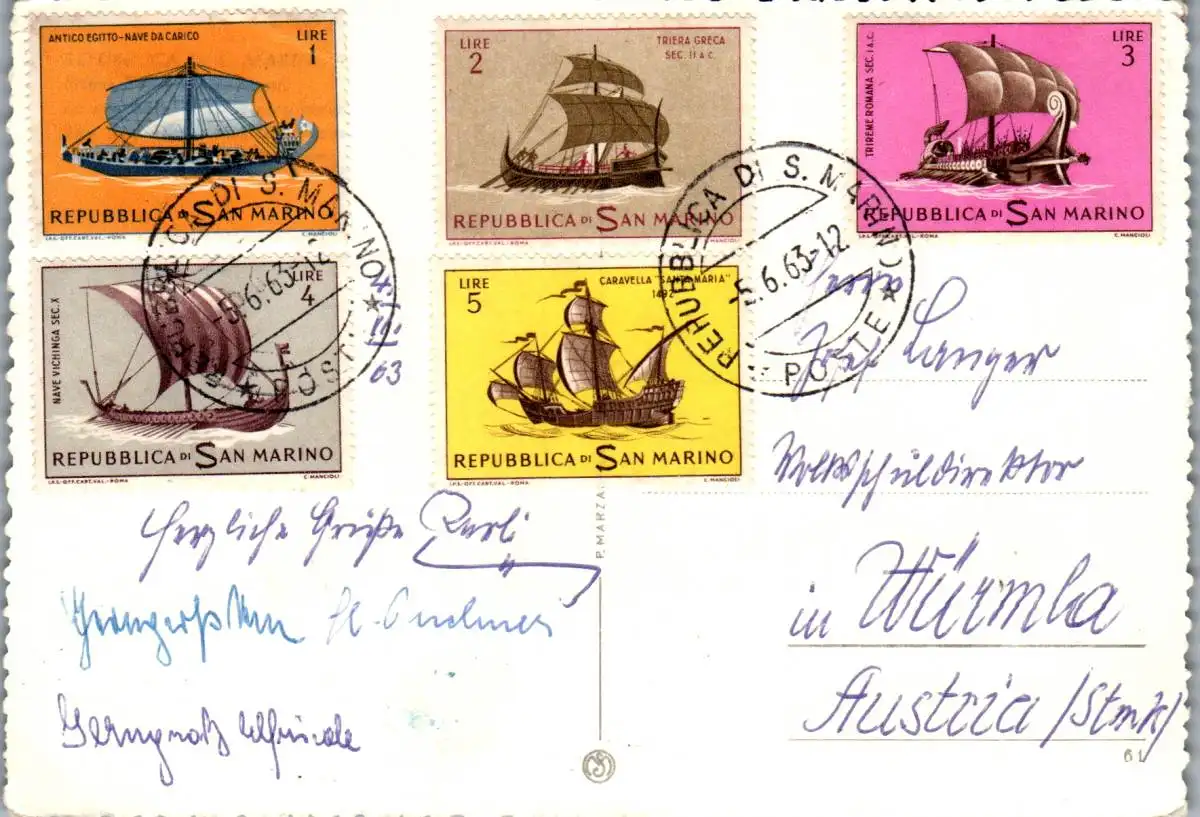 ANTICO EGITTO-NAVE DA CARICO
LIRE
1
REPUBBLICA DI SAN MARINO
I.P.S.-OFF.CART.VAL.-ROMA
C. MANCIOLI
LIRE
2
TRIERA GRECA
SEC. II A C.
REPUBBLICA DI SAN MARINO
I.P.S.-OFF.CART.VAL.-ROMA
C. MANCIOLI
LIRE
3
TRIREME ROMANA SEC. I A.C.
REPUBBLICA DI SAN MARINO
I.P.S.-OFF.CART.VAL.-ROMA
C. MANCIOLI
LIRE
4
NAVE VICHINGA SEC. X
REPUBBLICA DI SAN MARINO
I.P.S.-OFF.CART.VAL.-ROMA
C. MANCIOLI
LIRE
5
CARAVELLA "SANTA MARIA"
1492
REPUBBLICA DI SAN MARINO
I.P.S.-OFF.CART.VAL.-ROMA
C. MANCIOLI
REPUBBLICA DI S. MARINO
-5.6.63-12
POSTE
REPUBBLICA DI S. MARINO
-5.6.63-12
POSTE
63
Herzliche Grüße Karli
P. MARZA
Herrn
Josef Langer
Volksschuldirektor
in Würmla
Austria /Stmk/
61